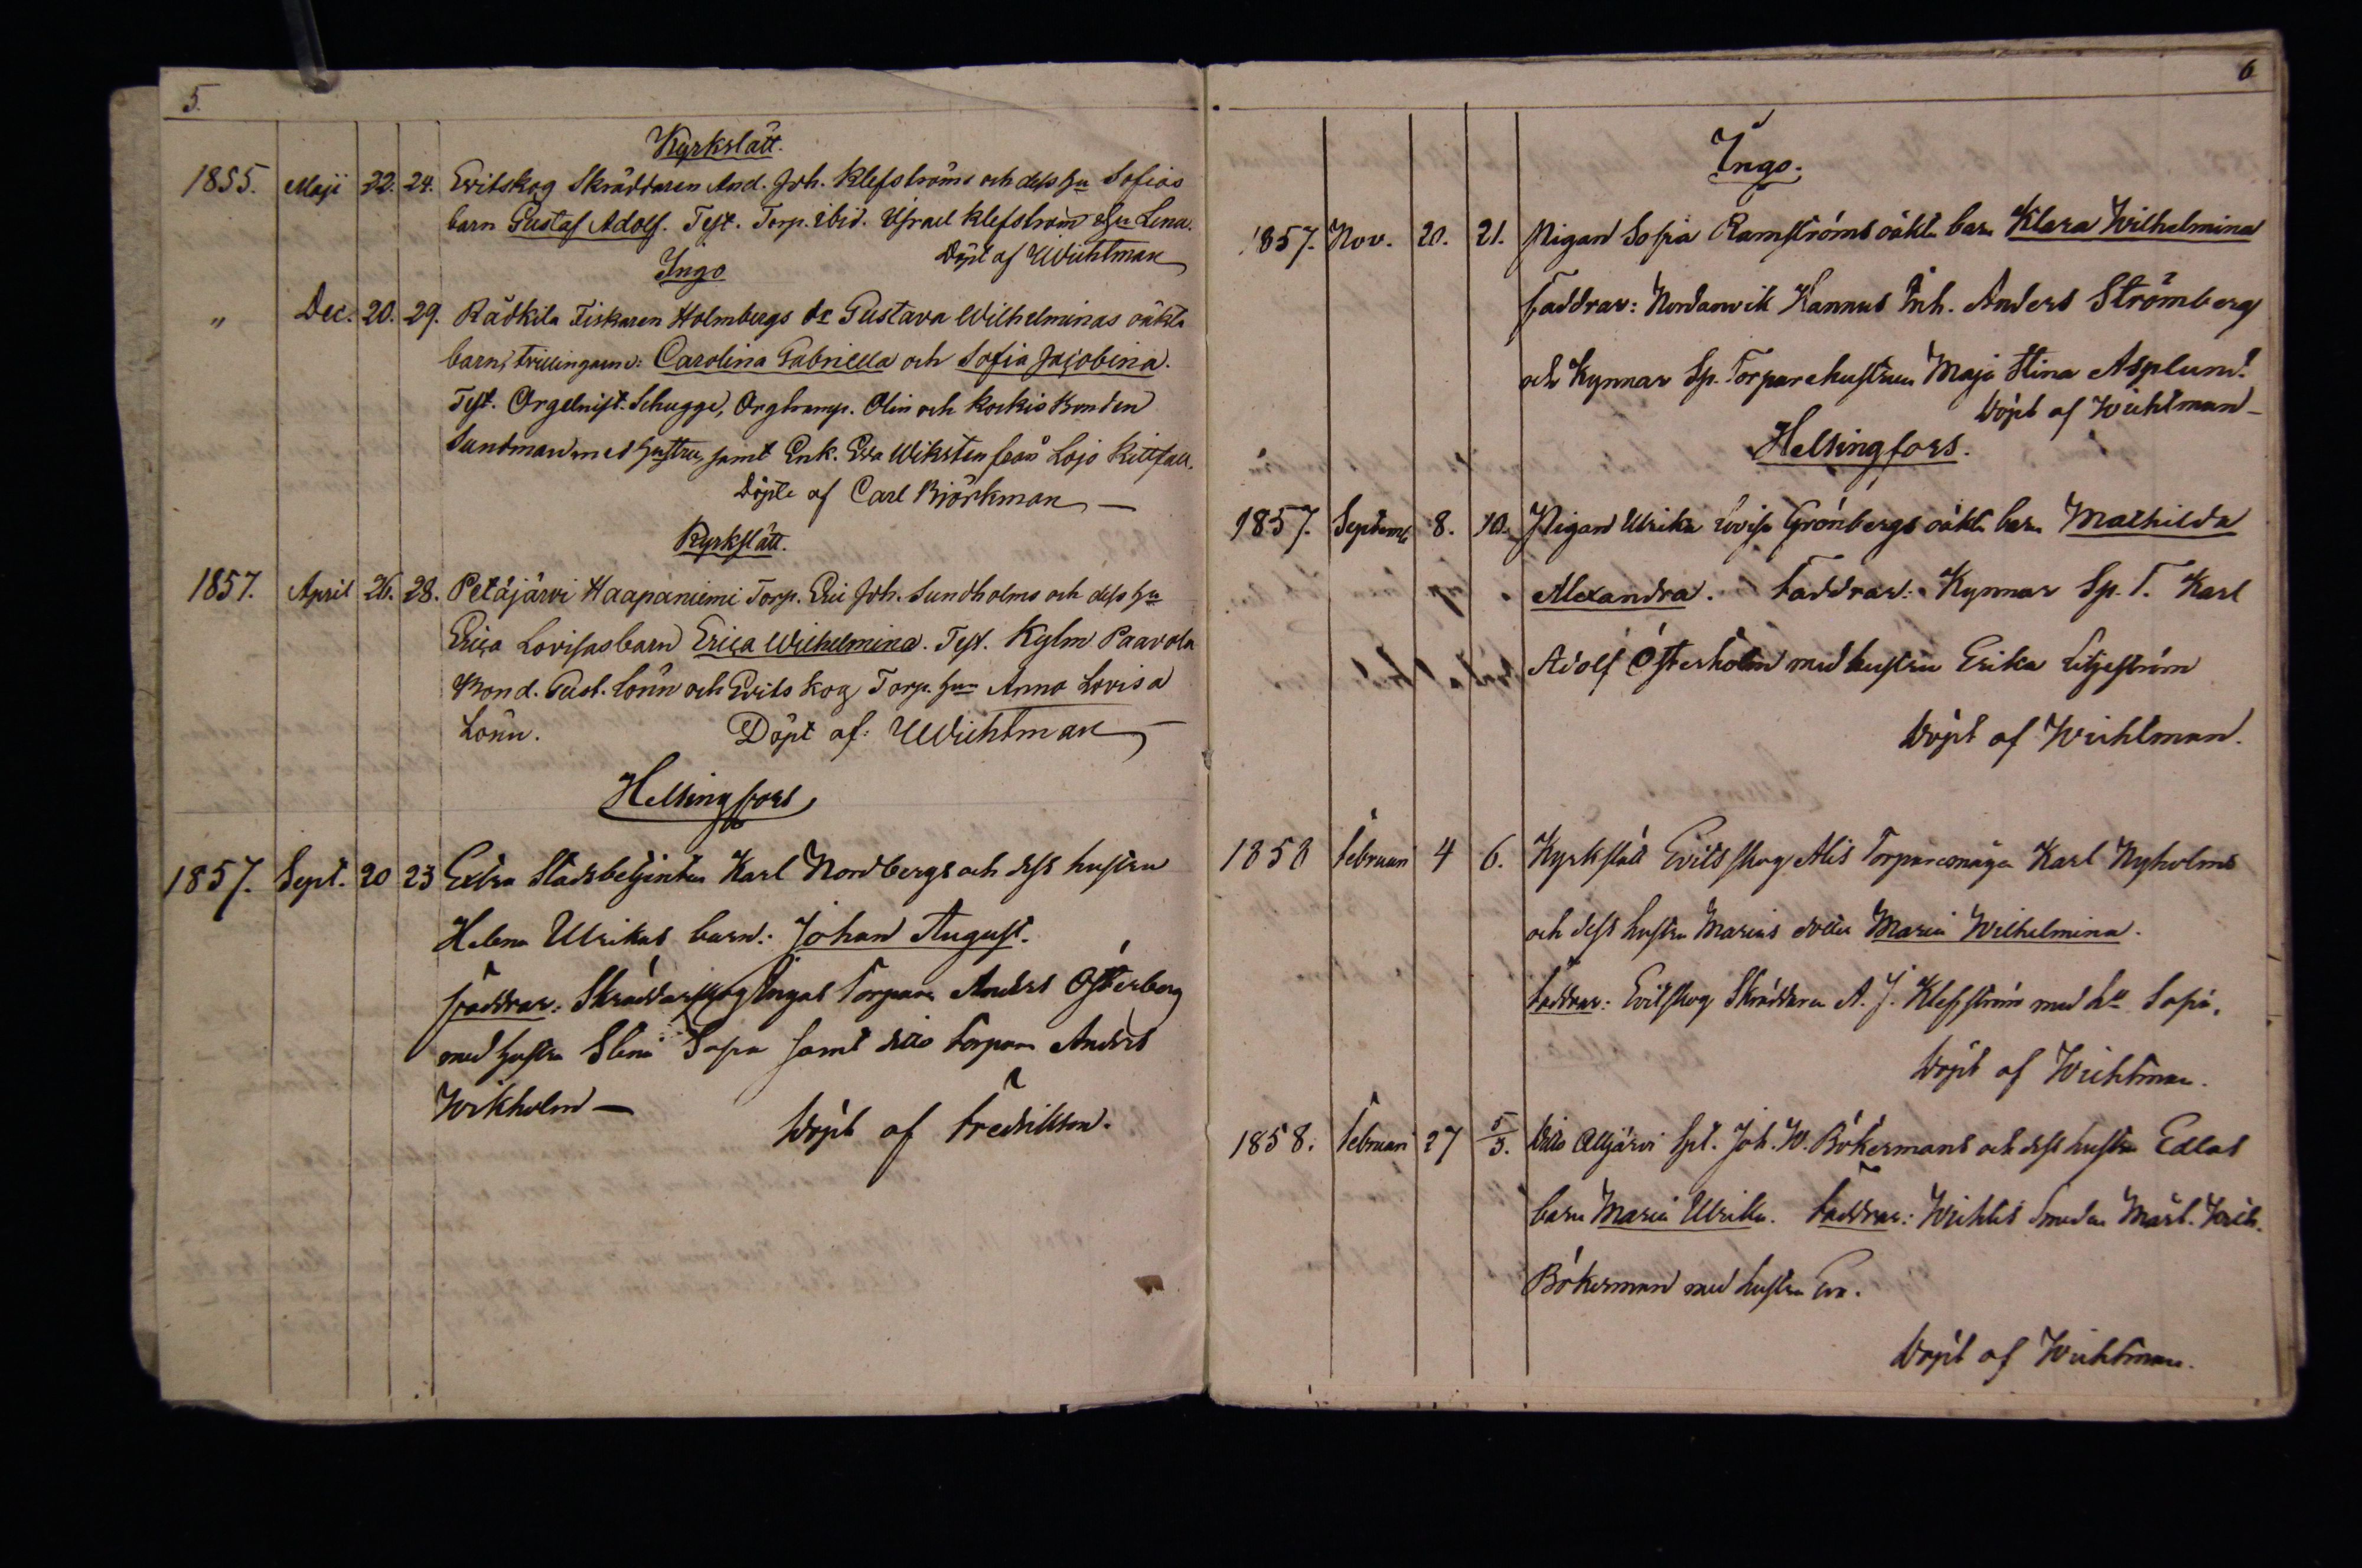 5.
Kyrkslätt.
1855. Maji 22. 24. Evitskog Skräddaren And. Joh. Klefströms och dess hu Sofias
barn Gustaf Adolf. Test. Torp. ibid. Israel Klefström o hu Lena.
Döpt af Wichtman
Ingo
" Dec. 20. 29. Rädkila Fiskaren Holmbergs dr Gustava Wilhelminas oäkta
barn, trillingarne: Carolina Gabriella och Sofia Jacobina.
Test. Orgelnist. Schugge, Orgtramp. Olin och Kockis Bonden
Sundman med hustru, samt Enk. Eva Wiksten från Lojo
Döpte af Carl Björkman —
Kyrkslätt.
1857. April 26. 28. Petäjärvi Haapaniemi Torp. Eric Joh. Sundholms och dess hu
Erica Lovisas barn Erica Wilhelmina. Test. Kylm Paavola
Bond. Gust. Lönn och Evitskog Torp. hun Anna Lovisa
Lönn. Döpt af: Wichtman —
Helsingfors
1857. Sept. 20 23 Extra Stadsbetjenten Karl Nordbergs och dess hustru
Helena Ulrikas barn: Johan August.
Faddrar: Skräddarskog Ingas Torpare Anders Österberg
med hustru Lena Sofia samt dito torpare Anders
Wikholm —
Döpt af Fredriksson.
6
Ingo.
1857. Nov. 20. 21. Pigan Sofia Ramströms oäkta barn Klara Wilhelmina
Faddrar: Nordanvik Kannus Inh. Anders Strömberg
och Kynnar Sp. Torparehustrun Maja Stina Asplund.
Döpt af Wichtman —
Helsingfors.
1857. Septemb 8. 10. Pigan Ulrika Lovisa Grönbergs oäkta barn Mathilda
Alexandra. Faddrar: Kynnar Sp. T. Karl
Adolf Österholm med hustru Erika Liljeström
Döpt af Wichtman.
1858 Februari 4 6. Kyrkslätt Evitskog Alis Torparemågen Karl Nyholms
och dess hustru Marias dotter Maria Wilhelmina.
Faddrar: Evitskog Skräddaren A. J. Klefström med hu Sofia.
Döpt af Wichtman.
1858. Februari 27 5/3. Dito Alljärvi Spt. Joh. W. Bökermans och dess hustru Edlas
barn Maria Ulrika. Faddrar: Wichtis Smeden Mårt. Wilh.
Bökerman med hustru Eva.
Döpt af Wichtman.